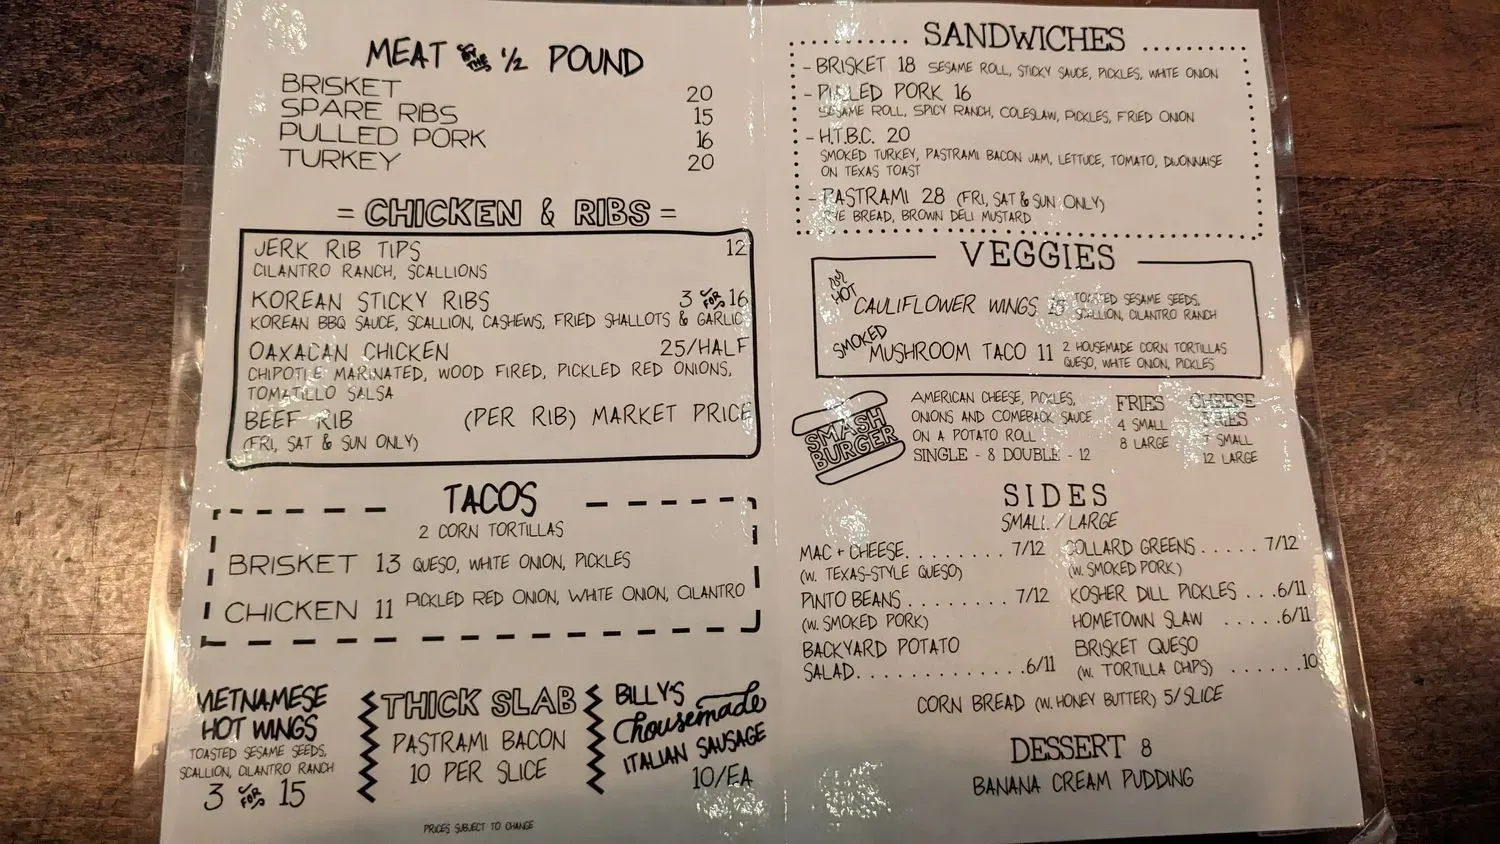 MEAT BY THE 1/2 POUND
BRISKET 20
SPARE RIBS 15
PULLED PORK 16
TURKEY 20
= CHICKEN & RIBS =
JERK RIB TIPS 12
CILANTRO RANCH, SCALLIONS
KOREAN STICKY RIBS 3 FOR 16
KOREAN BBQ SAUCE, SCALLION, CASHEWS, FRIED SHALLOTS & GARLIC
OAXACAN CHICKEN 25/HALF
CHIPOTLE MARINATED, WOOD FIRED, PICKLED RED ONIONS,
TOMATILLO SALSA
BEEF RIB (PER RIB) MARKET PRICE
(FRI, SAT & SUN ONLY)
TACOS
2 CORN TORTILLAS
BRISKET 13 QUESO, WHITE ONION, PICKLES
CHICKEN 11 PICKLED RED ONION, WHITE ONION, CILANTRO
VIETNAMESE
HOT WINGS
TOASTED SESAME SEEDS,
SCALLION, CILANTRO RANCH
3 FOR 15
THICK SLAB
PASTRAMI BACON
10 PER SLICE
BILLY'S
housemade
ITALIAN SAUSAGE
10/EA
PRICES SUBJECT TO CHANGE
SANDWICHES
- BRISKET 18 SESAME ROLL, STICKY SAUCE, PICKLES, WHITE ONION
- PULLED PORK 16
SESAME ROLL, SPICY RANCH, COLESLAW, PICKLES, FRIED ONION
- H.T.B.C. 20
SMOKED TURKEY, PASTRAMI BACON JAM, LETTUCE, TOMATO, DIJONNAISE
ON TEXAS TOAST
- PASTRAMI 28 (FRI, SAT & SUN ONLY)
RYE BREAD, BROWN DELI MUSTARD
VEGGIES
HOT
CAULIFLOWER WINGS 15 TOASTED SESAME SEEDS,
SCALLION, CILANTRO RANCH
SMOKED
MUSHROOM TACO 11 2 HOUSEMADE CORN TORTILLAS
QUESO, WHITE ONION, PICKLES
SMASH
BURGER
AMERICAN CHEESE, PICKLES,
ONIONS AND COMEBACK SAUCE
ON A POTATO ROLL
SINGLE - 8 DOUBLE - 12
FRIES
4 SMALL
8 LARGE
CHEESE
FRIES
7 SMALL
12 LARGE
SIDES
SMALL / LARGE
MAC + CHEESE. . . . . . . . . 7/12
(W. TEXAS-STYLE QUESO)
PINTO BEANS. . . . . . . . . 7/12
(W. SMOKED PORK)
BACKYARD POTATO
SALAD. . . . . . . . . . . . . . .6/11
COLLARD GREENS . . . . . 7/12
(W. SMOKED PORK)
KOSHER DILL PICKLES . . .6/11
HOMETOWN SLAW . . . . . .6/11
BRISKET QUESO
(W. TORTILLA CHIPS) . . . . . . .10
CORN BREAD (W. HONEY BUTTER) 5/SLICE
DESSERT 8
BANANA CREAM PUDDING